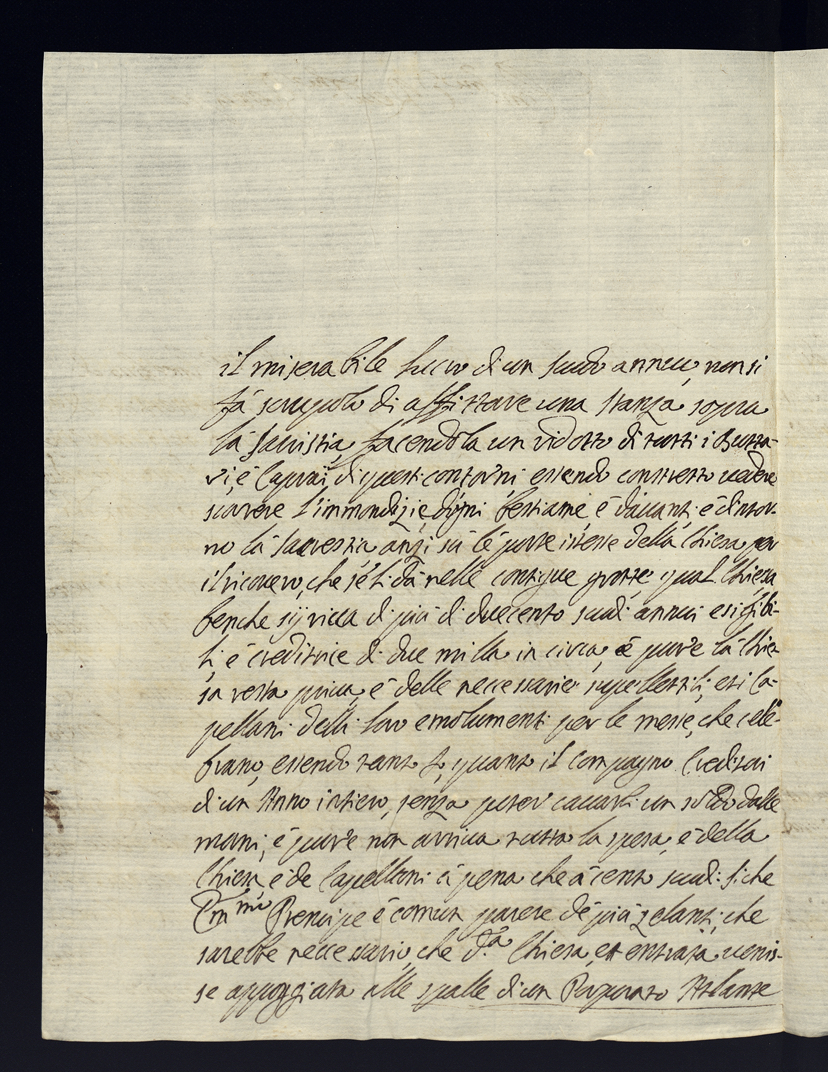 il miserabile lucro di un scudo annuo, non si
fà scrupolo di affittare una stanza sopra
la sacristia, facendola un ridotto di tutti i Butta-
ri, è Caprai di questi contorni essendo constretto vedere
scorrere l'immondizie d'ogni bestiame è davanti è dintor-
no la sacrestia anzi sù le porte istesse della Chiesa per
il ricovero, che sé li dà nelle contigue grotte: qual Chiesa
benche sij ricca di più di duecento scudi annui esigibi-
li, è creditrice di due milla in circa, è pur'e la Chie-
sa resta priva, è delle necessarie supellettili, et i Ca-
pellani delli loro emolumenti per le messe, che cele-
brano, essendo tanto Io, quanto il Compagno Creditori
di un Anno intiero, senza poter cavarli un soldo dalle
mani, è pur'e non arriva tutta la spesa, è della
Chiesa, è de Capellani à pena che à cento scudi: siche
Em.mo Prencipe è comun parere de più zelanti, che
sarebbe necessario, che d.ta Chiesa, et entrata venis-
se appoggiata alle spalle di un Porporato Atlante